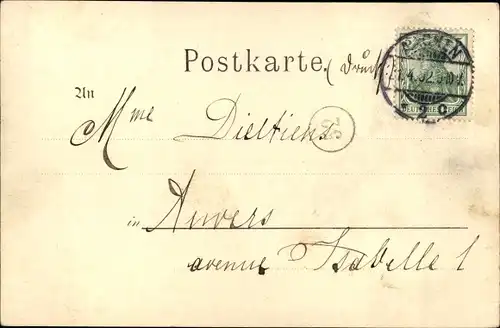 Postkarte. (Druck)
An
Mme Dieltiens
in Anvers
avenue Isabelle 1